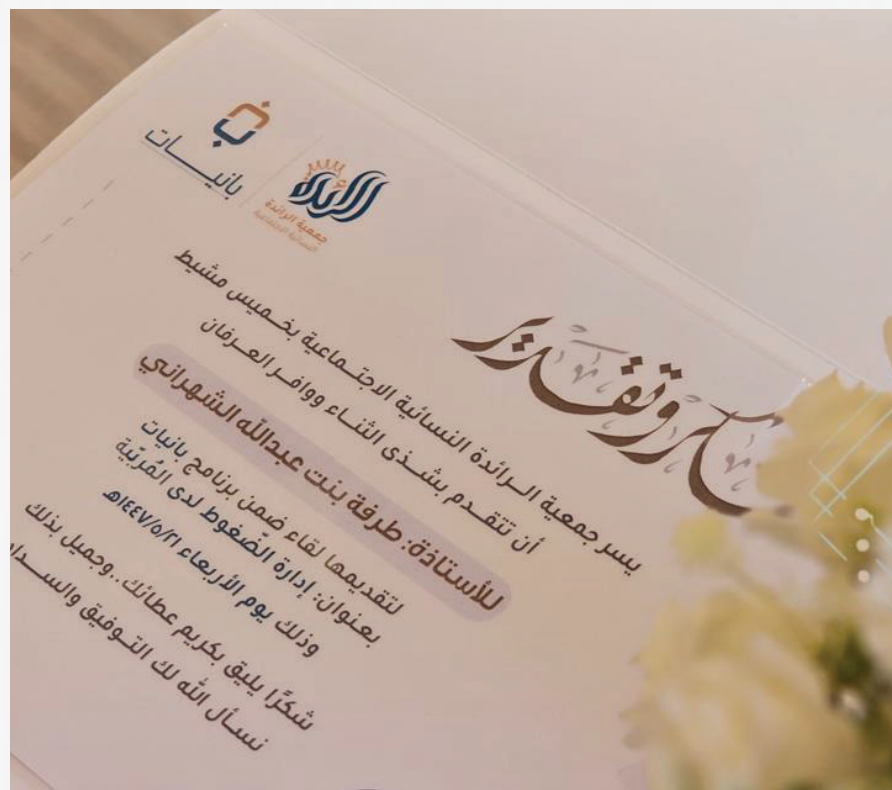 بانيات
الرائدة
جمعية الرائدة
النسائية الاجتماعية
شكر وتقدير
يسر جمعية الرائدة النسائية الاجتماعية بخميس مشيط
أن تتقدم بشذى الثناء ووافر العرفان
للأستاذة: طرفة بنت عبدالله الشهراني
لتقديمها لقاء ضمن برنامج بانيات
بعنوان: إدارة الضّغوط لدى المُربّية
وذلك يوم الأربعاء ١٤٤٧/٥/٢١هـ
شكرًا يليق بكريم عطائك..وجميل بذلك
نسأل الله لك التوفيق والسداد